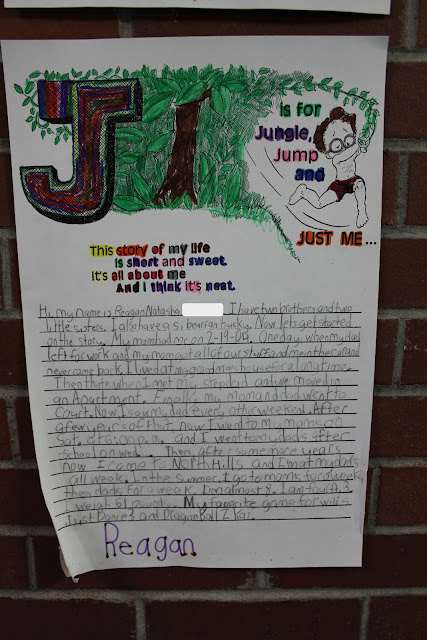 J
is for
Jungle,
Jump
and
JUST ME...
This story of my life
is short and sweet.
It's all about me
And I think it's neat.
Hi, my name is Reagan Natasha I have two brothers and two
little sisters. I also have a siberian husky. Now lets get started
on the story. My mom had me on 2-19-04. One day when my dad
left for work and my mom put all of our stuff and me in the car and
never came back. I lived at my grandma's house for a long time.
Then thats when I met my stepdad and we moved in
an Apartment. Finally, my mom and dad went to
Court. Now, I saw my dad every other weekend. After
a few years of that, now I went to my mams on
Sat. at 6:00 p.m. and I went to my dads after
school on wed. Then, after some more years
now I come to North Hills and I'm at my dads
all week. In the summer, I go to mams for a week,
then dads for a week. I'm almost 8. I am 4 foot 3
I weigh 61 pounds. My favorite game for wii is
Just Dance 3 and Dragon Ball Z Kai.
Reagan